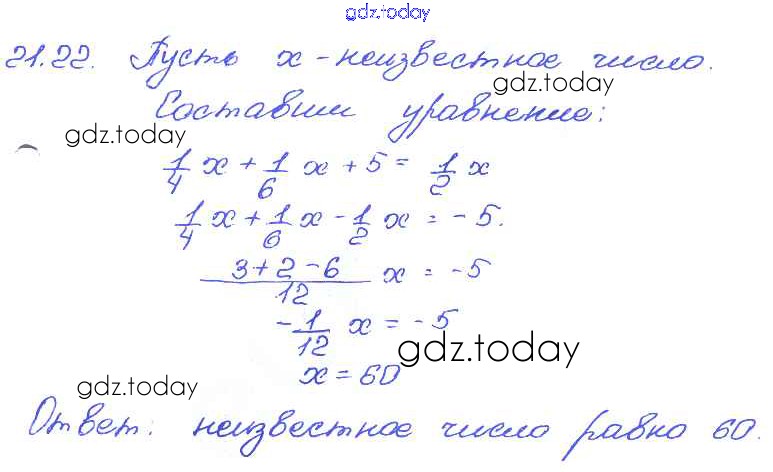 gdz.today
21.22. Пусть x - неизвестное число.
gdz.today
Составим уравнение:
gdz.today
1/4 x + 1/6 x + 5 = 1/2 x
1/4 x + 1/6 x - 1/2 x = -5.
(3+2-6)/12 x = -5
-1/12 x = -5
gdz.today
x = 60
gdz.today
Ответ: неизвестное число равно 60.